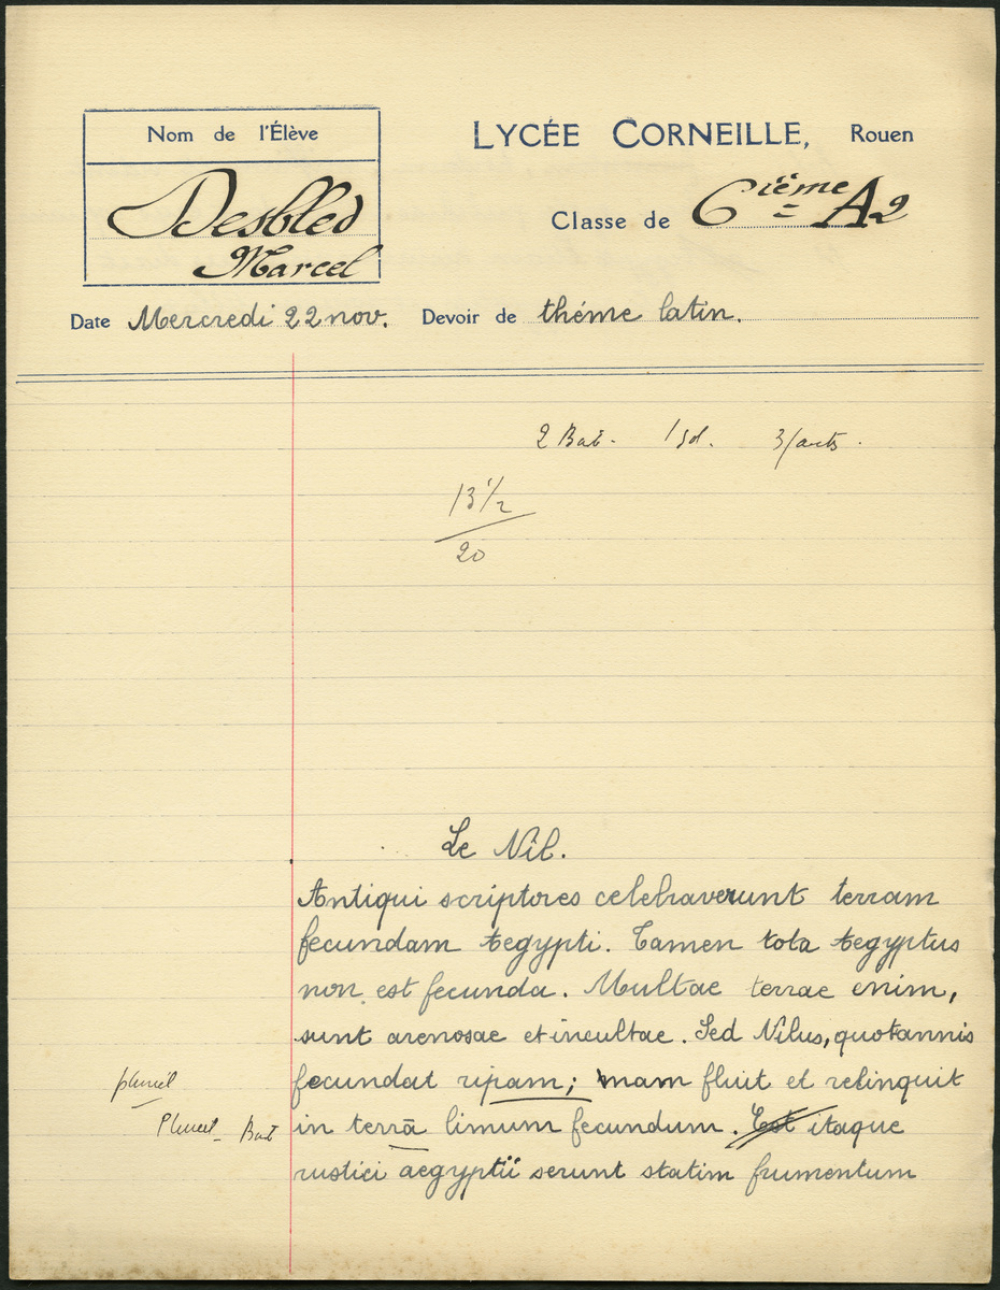 Nom de l'Élève
LYCÉE CORNEILLE, Rouen
Desbled
Marcel
Classe de 6ième A2
Date Mercredi 22 nov. Devoir de théme latin.
2 Bar. 1 sol. 3 faits.
13 1/2
20
Le Nil.
Antiqui scriptores celebraverunt terram
fecundam Aegypti. Tamen tota Aegyptus
non est fecunda. Multae terrae enim,
sunt arenosae et incultae. Sed Nilus, quotannis
pluriel fecundat ripam; nam fluit et relinquit
Pluriel Bar in terrā limum fecundum. Est itaque
rustici aegyptii serunt statim frumentum